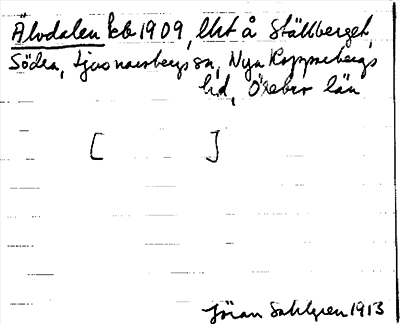 Älvdalen bb 1909, lht å Ställberget,
Södra, Ljusnarsbergs sn, Nya Kopparbergs
hd, Örebro län
[ ]
Jöran Sahlgren 1913